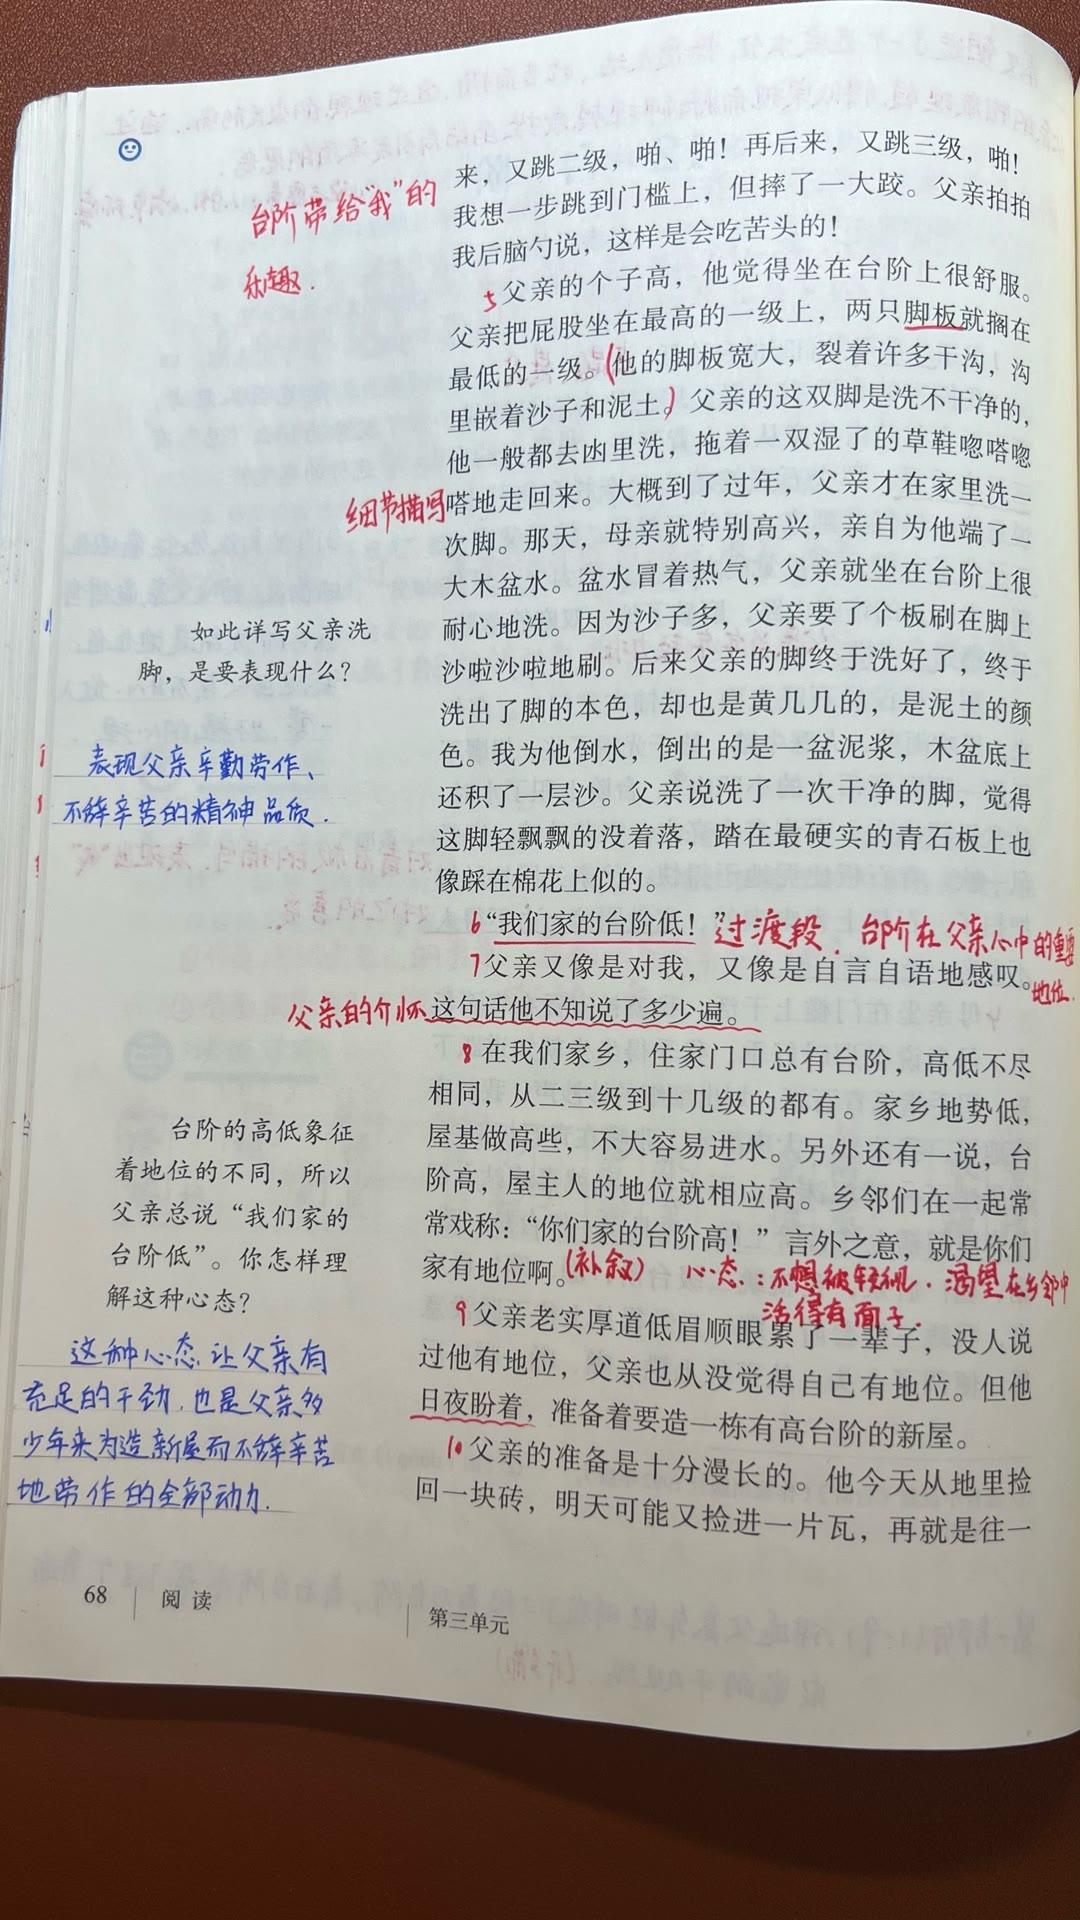 来，又跳二级，啪、啪！再后来，又跳三级，啪！
我想一步跳到门槛上，但摔了一大跤。父亲拍拍
我后脑勺说，这样是会吃苦头的！
台阶带给“我”的
乐趣．
5 父亲的个子高，他觉得坐在台阶上很舒服。
父亲把屁股坐在最高的一级上，两只脚板就搁在
最低的一级。(他的脚板宽大，裂着许多干沟，沟
里嵌着沙子和泥土。)父亲的这双脚是洗不干净的，
他一般都去凼里洗，拖着一双湿了的草鞋唿嗒唿
嗒地走回来。大概到了过年，父亲才在家里洗一
细节描写
次脚。那天，母亲就特别高兴，亲自为他端了一
大木盆水。盆水冒着热气，父亲就坐在台阶上很
耐心地洗。因为沙子多，父亲要了个板刷在脚上
沙啦沙啦地刷。后来父亲的脚终于洗好了，终于
洗出了脚的本色，却也是黄几几的，是泥土的颜
色。我为他倒水，倒出的是一盆泥浆，木盆底上
还积了一层沙。父亲说洗了一次干净的脚，觉得
这脚轻飘飘的没着落，踏在最硬实的青石板上也
像踩在棉花上似的。
如此详写父亲洗
脚，是要表现什么？
表现父亲辛勤劳作、
不辞辛苦的精神品质．
6 “我们家的台阶低！”
过渡段．台阶在父亲心中的重要
地位．
7 父亲又像是对我，又像是自言自语地感叹。
这句话他不知说了多少遍。
父亲的介怀
8 在我们家乡，住家门口总有台阶，高低不尽
相同，从二三级到十几级的都有。家乡地势低，
屋基做高些，不大容易进水。另外还有一说，台
阶高，屋主人的地位就相应高。乡邻们在一起常
常戏称：“你们家的台阶高！”言外之意，就是你们
家有地位啊。
(补叙) 心态：不想被轻视．渴望在乡邻中
活得有面子．
台阶的高低象征
着地位的不同，所以
父亲总说“我们家的
台阶低”。你怎样理
解这种心态？
这种心态让父亲有
充足的干劲．也是父亲多
少年来为造新屋而不辞辛苦
地劳作的全部动力．
9 父亲老实厚道低眉顺眼累了一辈子，没人说
过他有地位，父亲也从没觉得自己有地位。但他
日夜盼着，准备着要造一栋有高台阶的新屋。
10 父亲的准备是十分漫长的。他今天从地里捡
回一块砖，明天可能又捡进一片瓦，再就是往一
68 阅读
第三单元